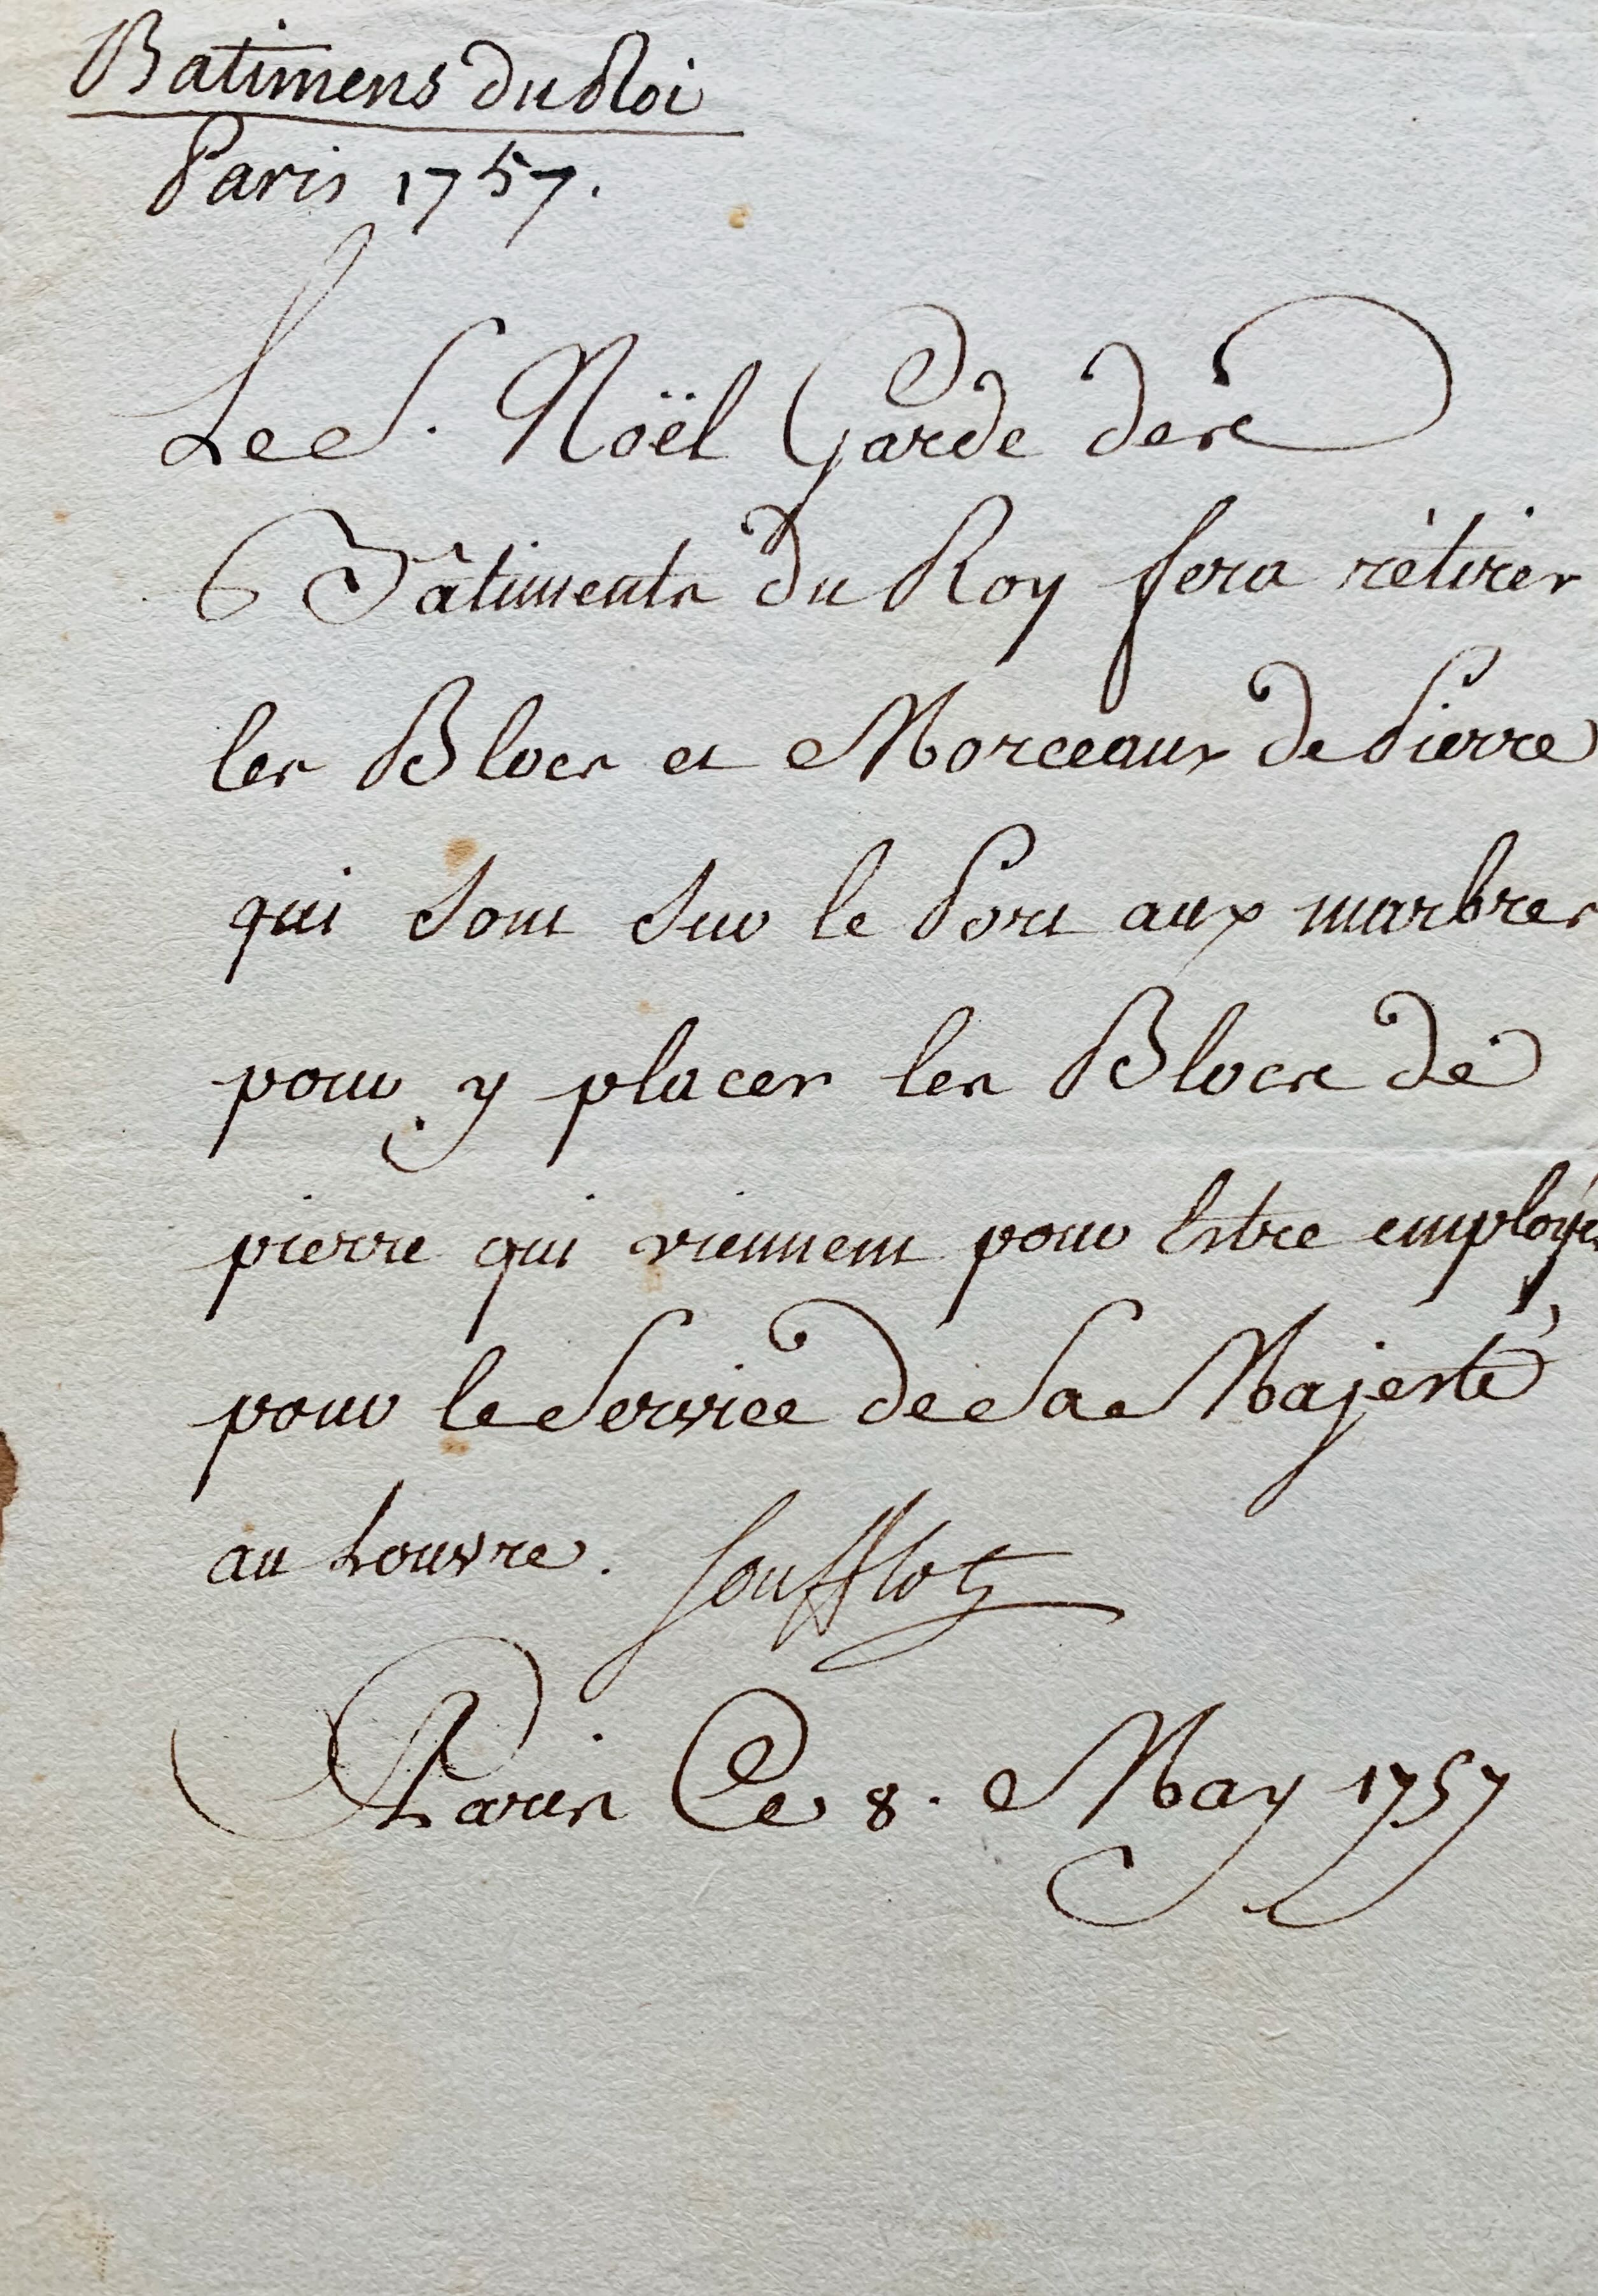 Batimens du Roi
Paris 1757.
Le S. Noël Garde des
Bâtiments du Roy fera rétirer
les Blocs et Morceaux de Pierre
qui sont sur le Port aux marbres
pour y placer les Blocs de
pierre qui viennent pour Estre employés
pour le Service de Sa Majesté
au Louvre. Soufflot
Paris Ce 8. May 1757